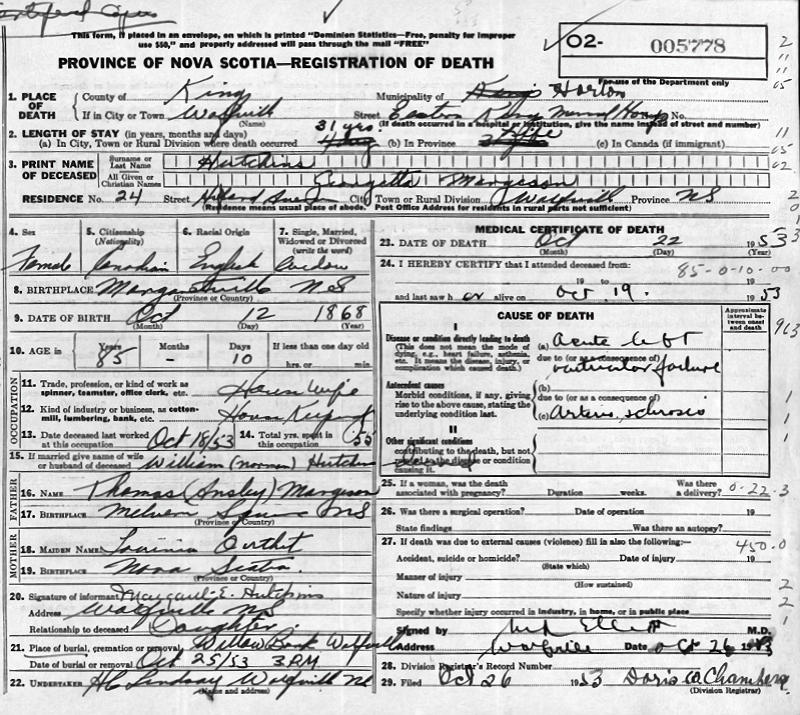 This form, if placed in an envelope, on which is printed "Dominion Statistics—Free, penalty for improper
use $50," and properly addressed will pass through the mail "FREE"
PROVINCE OF NOVA SCOTIA—REGISTRATION OF DEATH
O2- 005778
For use of the Department only
1. PLACE OF DEATH
County of Kings Municipality of Kings Horton
If in City or Town Wolfville Street Eastern Kings Memorial Hosp No.
(Name) (If death occurred in a hospital or institution, give the name instead of street and number)
2. LENGTH OF STAY (in years, months and days) 31 yrs. Life
(a) In City, Town or Rural Division where death occurred (b) In Province (c) In Canada (if immigrant)
3. PRINT NAME OF DECEASED
Surname or Last Name Hutchins
All Given or Christian Names Georgetta Margeson
RESIDENCE No. 24 Street Highland Avenue City, Town or Rural Division Wolfville Province NS
(Residence means usual place of abode. Post Office Address for residents in rural parts not sufficient)
4. Sex 5. Citizenship (Nationality) 6. Racial Origin 7. Single, Married, Widowed or Divorced (write the word)
Female Canadian English Widow
8. BIRTHPLACE Margaretville NS
(Province or Country)
9. DATE OF BIRTH Oct 12 1868
(Month) (Day) (Year)
10. AGE in Years Months Days If less than one day old
85 - 10 hrs. or min.
OCCUPATION
11. Trade, profession, or kind of work as spinner, teamster, office clerk, etc. House Wife
12. Kind of industry or business, as cotton-mill, lumbering, bank, etc. House Keeping
13. Date deceased last worked at this occupation Oct 18/53 14. Total yrs. spent in this occupation 55
15. If married give name of wife or husband of deceased William (Norman) Hutchins
FATHER
16. NAME Thomas (Ansley) Margeson
17. BIRTHPLACE Melvern Square NS
(Province or Country)
MOTHER
18. MAIDEN NAME Lavinia Outhit
19. BIRTHPLACE Nova Scotia
(Province or Country)
20. Signature of informant Margaret E. Hutchins
Address Wolfville NS
Relationship to deceased Daughter
21. Place of burial, cremation or removal Willow Bank Wolfville
Date of burial or removal Oct 25/53 3 PM
22. UNDERTAKER HC Lindsay Wolfville NS
(Name and address)
MEDICAL CERTIFICATE OF DEATH
23. DATE OF DEATH Oct 22 1953
(Month) (Day) (Year)
24. I HEREBY CERTIFY that I attended deceased from: 85-0-10-00
19 to 19
and last saw her alive on Oct 19. 1953
CAUSE OF DEATH
Approximate interval between onset and death
I
Disease or condition directly leading to death (a) Acute left
(This does not mean the mode of dying, e.g., heart failure, asthenia, etc. It means the disease, injury, or complication which caused death.)
due to (or as a consequence of)
ventricular failure
Antecedent causes (b)
Morbid conditions, if any, giving rise to the above cause, stating the underlying condition last.
due to (or as a consequence of)
(c) Arterio sclerosis
II
Other significant conditions
contributing to the death, but not related to the disease or condition causing it.
25. If a woman, was the death associated with pregnancy? Duration weeks. Was there a delivery? 0-22-3
26. Was there a surgical operation? Date of operation 19
State findings Was there an autopsy?
27. If death was due to external causes (violence) fill in also the following:— 450.0
Accident, suicide or homicide? Date of injury 19
(State which)
Manner of injury
(How sustained)
Nature of injury
Specify whether injury occurred in industry, in home, or in public place
Signed by M.D.
Address Wolfville Date Oct 26 1953
28. Division Registrar's Record Number
29. Filed Oct 26 1953 Doris Chambers
(Division Registrar)